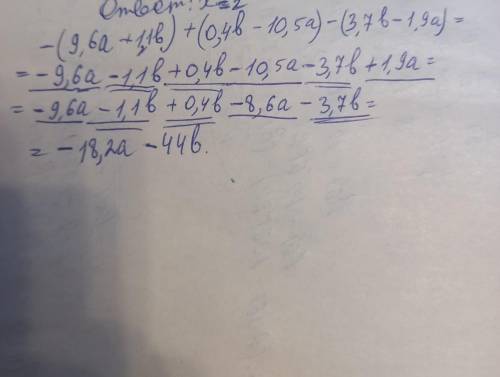 Ответ: x=2
-(9,6а+1,1в)+(0,4в-10,5а)-(3,7в-1,9а)=
=-9,6а-1,1в+0,4в-10,5а-3,7в+1,9а=
=-9,6а-1,1в+0,4в-8,6а-3,7в=
=-18,2а-44в.